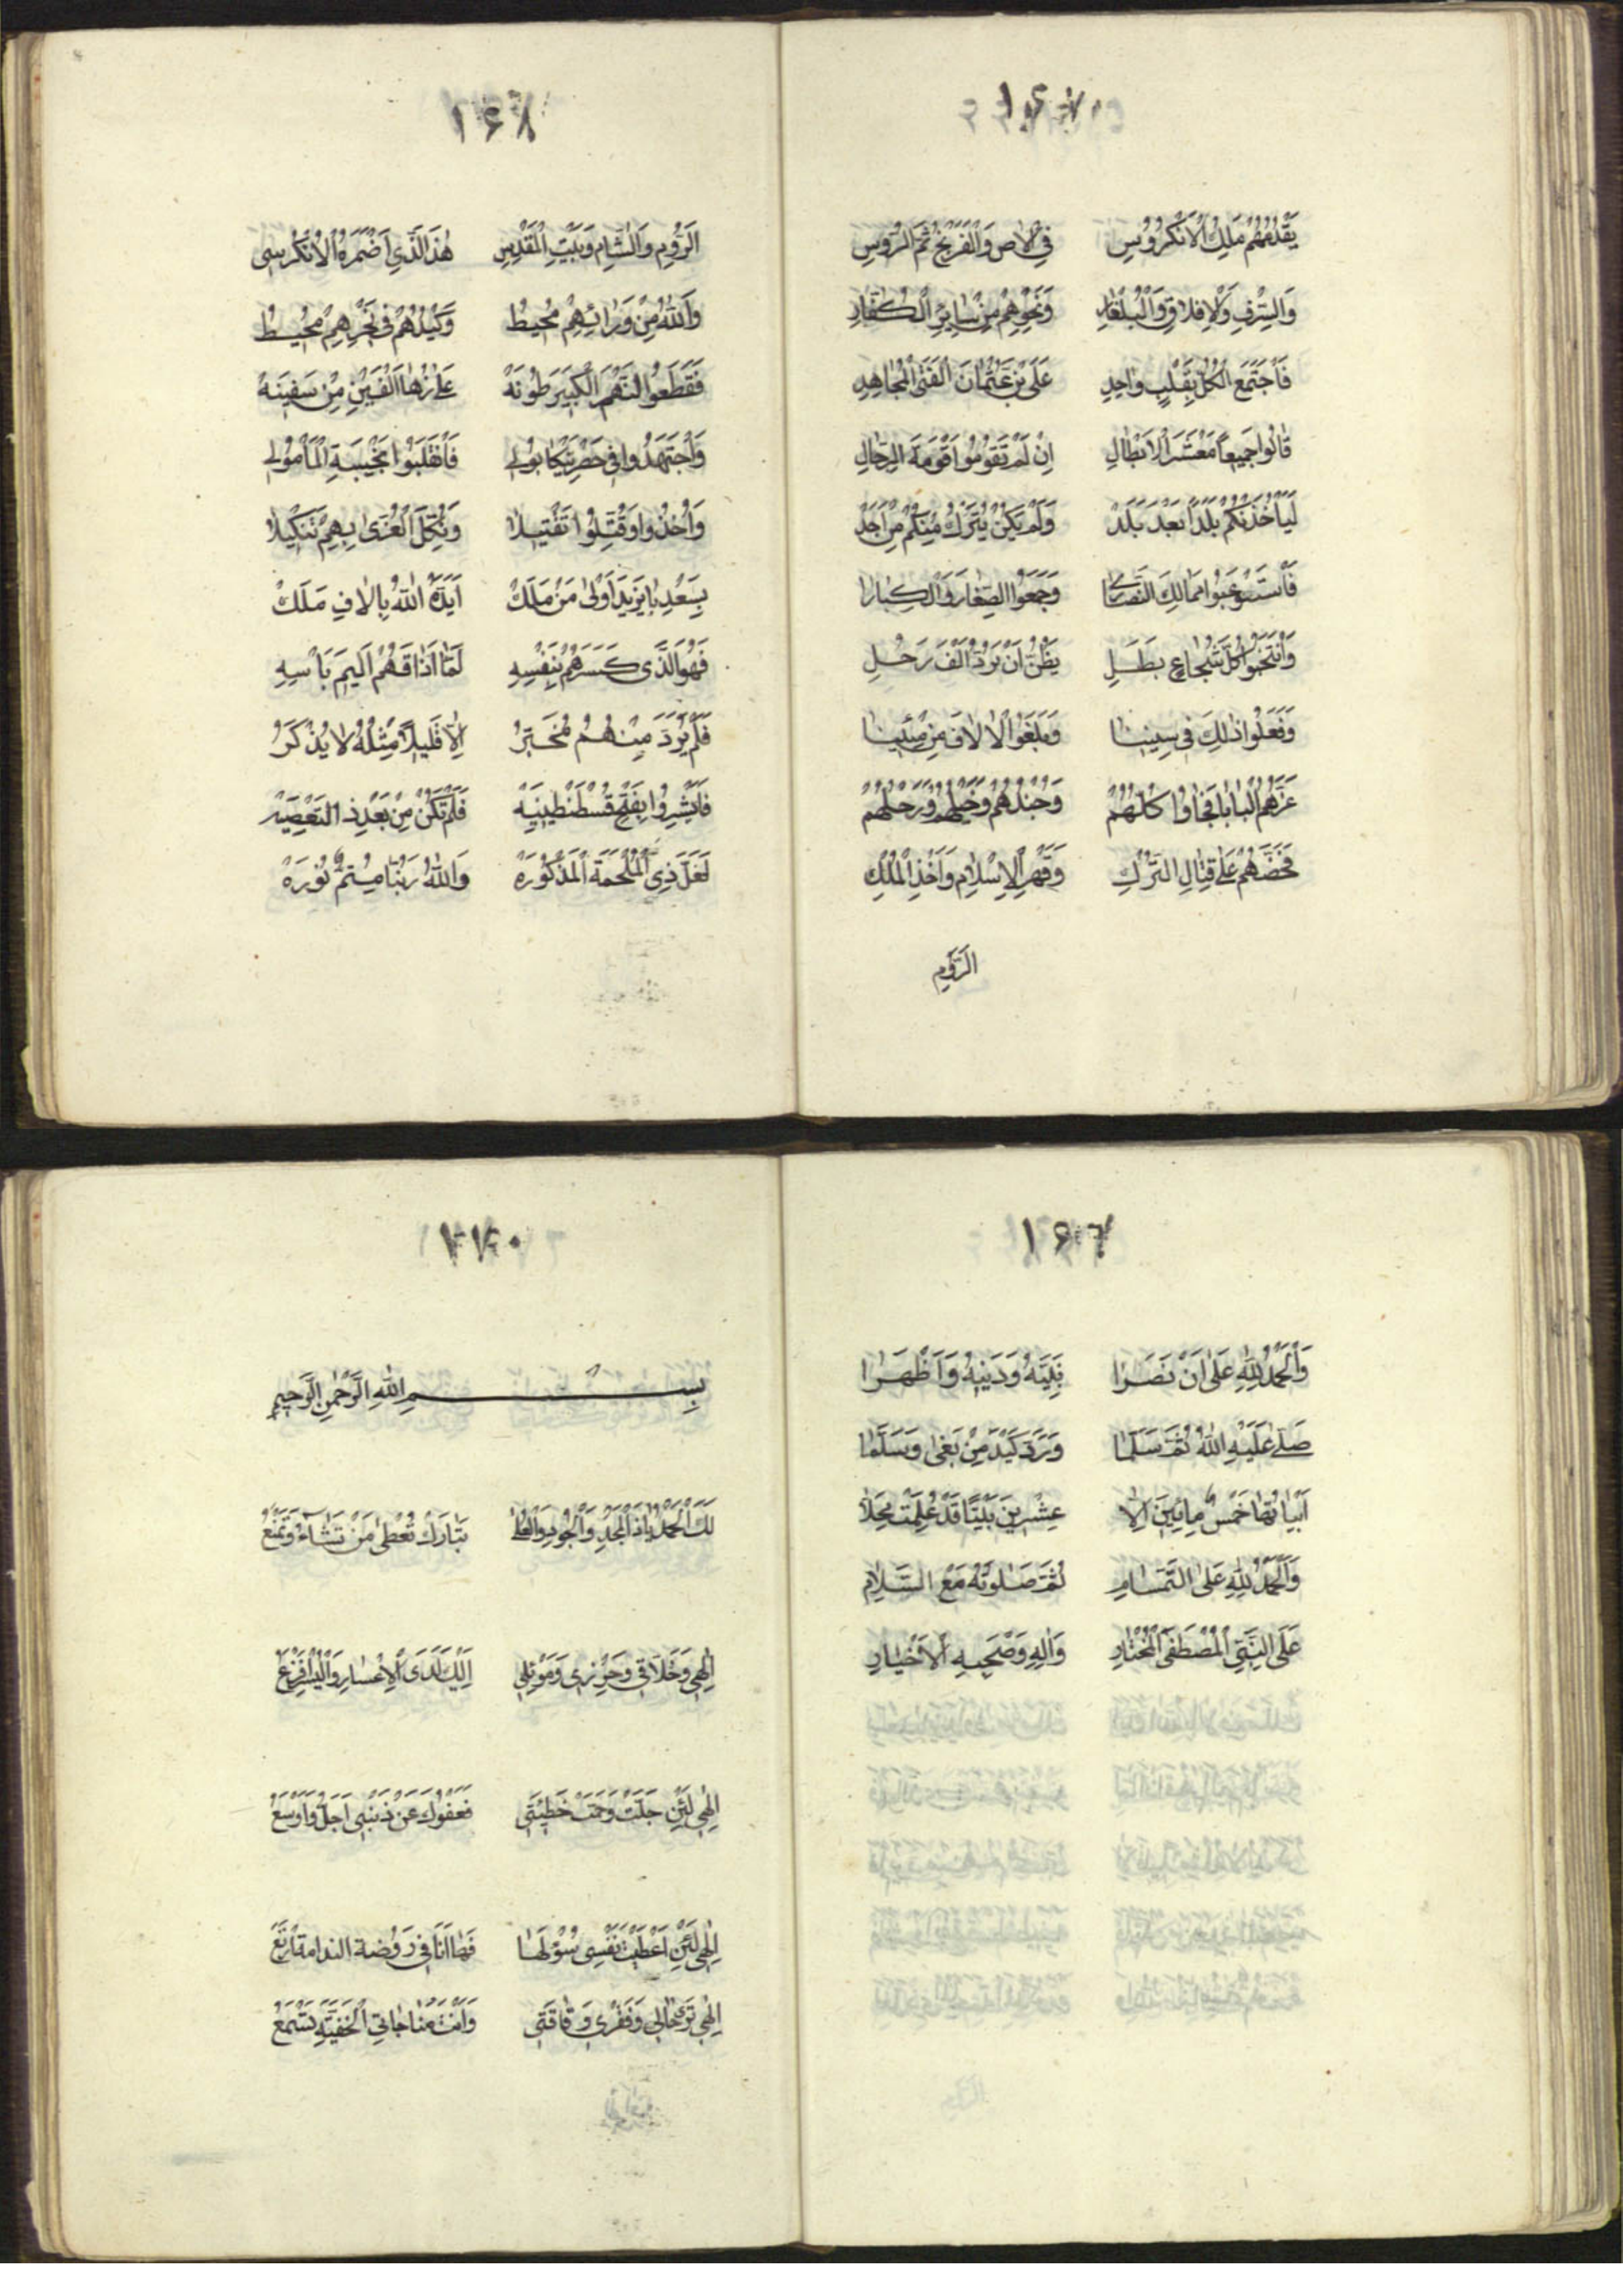 ١٦٧
يَقْدُمُهُمْ مَلِكُ الْاَنْكَرُوُسِ فِي الْاٰصِ وَالْفَرَنْجِ ثُمَّ الرُّوسِ
وَالسِّرْفِ وَالْاِفلاقِ وَالْبُلْغَارِ وَنَحْوِهِمْ مِنْ سٰايِرِ الْكُفّٰارِ
فَاجْتَمَعَ الْكُلُّ بِقَلْبٍ وٰاحِدِ عَلَى بْنِ عُثْمٰانَ الْفَتَى الْمُجٰاهِدِ
قٰالُوا جَمِيعاً مَعْشَرَ الْاَبْطٰالِ اِنْ لَمْ تَقُومُوا قَوْمَةَ الرِّجٰالِ
لَيَأْخُذَنَّكُمْ بَلَداً بَعْدَ بَلَدْ وَلَمْ يَكُنْ يُتْرَكُ مِنْكُمْ مِنْ اَحَدْ
فَاسْتَوْعَبُوا مَمَالِكَ النَّصَارٰى وَجَمَعُوا الصِّغَارَ وَالْكِبٰارا
وَانْتَخَبُوا كُلَّ شُجٰاعٍ بَطَلِ يَظُنُّ اَنْ يَرُدَّ اَلْفَ رَجُلِ
وَفَعَلُوا ذٰلِكَ فِى سِنِينٰا وَبَلَغُوا الْاٰلاٰفَ مِنْ مِئِينٰا
غَزَّهُمُ الْبَابٰا فَجٰاوُا كُلُّهُمْ وَجُنْدُهُمْ وَخَيْلُهُمْ وَرَجْلُهُمْ
فَحَضَّهُمْ عَلٰى قِتَالِ التُّرْكِ وَقَهْرِ الْاِسْلاٰمِ وَاَخْذِ الْمُلْكِ
الرُّومِ
١٦٨
الرُّومِ وَالشّٰامِ وَبَيْتِ الْمَقْدِسِ هٰذَا الَّذِي اَضْمَرَهُ الْاَنْكَرُسِى
وَاللهُ مِنْ وَرٰائِهِمْ مُحِيطُ وَكَيْدُهُمْ فِى نَحْرِهِمْ مُحِيطُ
فَقَطَعُوا النَّهْرَ الْكَبِيرَ طُونَهْ عَلٰى زُهٰا اَلْفَيْنِ مِنْ سَفِينَهْ
وَاجْتَهَدُوا فِى حَصْرِ نِيكَابُولِى فَانْقَلَبُوا بِخَيْبَةِ الْمَأْمُولِ
وَاُخِذُوا وَقُتِّلُوا تَقْتِيلاٰ وَنُكِّلَ الْعُزَّى بِهِمْ تَنْكِيلاٰ
بِسَعْدِ بٰايَزِيدَ اَوْلٰى مَنْ مَلَكْ اَيَّدَهُ اللهُ بِاٰلاٰفِ مَلَكْ
فَهُوَ الَّذَى كَسَرَهُمْ بِنَفْسِهِ لَمّٰا اَذٰاقَهُمْ اَلِيمَ بَأْسِهِ
فَلَمْ يُرَدَّ مِنْهُمُ مُخَبِّرُ اِلاّٰ قَلِيلاً مِثْلُهُ لاٰ يُذْكَرُ
فَاَبْشِرُوا بِفَتْحِ قُسْطَنْطِينِيَّهْ فَلَمْ تَكُنْ مِنْ بَعْدِ ذٰا التَّعْصِيَهْ
لَعَلَّ ذِى الْمَلْحَمَةَ الْمَذْكُورَهْ وَاللهُ رَبُّنٰا مُتِمٌّ نُورَهْ
١٦٦
وَالْحَمْدُ لِلّٰهِ عَلٰى اَنْ نَصَرٰا نَبِيَّهُ وَدَيْنِهُ وَاَظْهَرٰا
صَلّٰى عَلَيْهِ اللهُ ثُمَّ سَلَّمٰا وَرَدَّ كَيْدَ مَنْ بَغٰى وَسَلَّمٰا
اَبْيٰاتُهٰا خَمْسُ مِاتَيْنَ اِلاّٰ عِشْرِينَ بَيْتًا قَدْ عُلِمَتْ مَحَلاّٰ
وَالْحَمْدُ لِلّٰهِ عَلَى التَّمَامِ ثُمَّ صَلٰوتُهُ مَعَ السَّلاٰمِ
عَلَى النَّبِيِّ الْمُصْطَفَى الْمُخْتٰارِ وَاٰلِهِ وَصَحْبِهِ الْاَخْيٰارِ
بِسْمِ اللهِ الرَّحْمٰنِ الرَّحِيمِ
لَكَ الْحَمْدُ يٰا ذَا الْمَجْدِ وَالْجُودِ وَالْعُلٰى تَبٰارَكْتَ تُعْطِى مَنْ تَشَآءُ وَتَمْنَعُ
اِلٰهِي وَخَلاّٰقِي وَحِرْزِى وَمَوْئِلِي اِلَيْكَ لَدَى الْاِعْسٰارِ وَالْيُسْرِ اَفْزَعُ
اِلٰهِي لَئِنْ جَلَّتْ وَجَمَّتْ خَطِيْئَتِي فَعَفْوُكَ عَنْ ذَنْبِى اَجَلُّ وَاَوْسَعُ
اِلٰهِي لَئِنْ اَعْطَيْتُ نَفْسِى سُؤْلَهٰا فَهٰا اَنَا فِي رَوْضَةِ النَّدٰامَةِ اَرْتَعُ
اِلٰهِي تَرٰى حٰالِى وَفَقْرِى وَفٰاقَتِى وَاَنْتَ مُنٰاجٰاتِي الْخَفِيَّةَ تَسْمَعُ